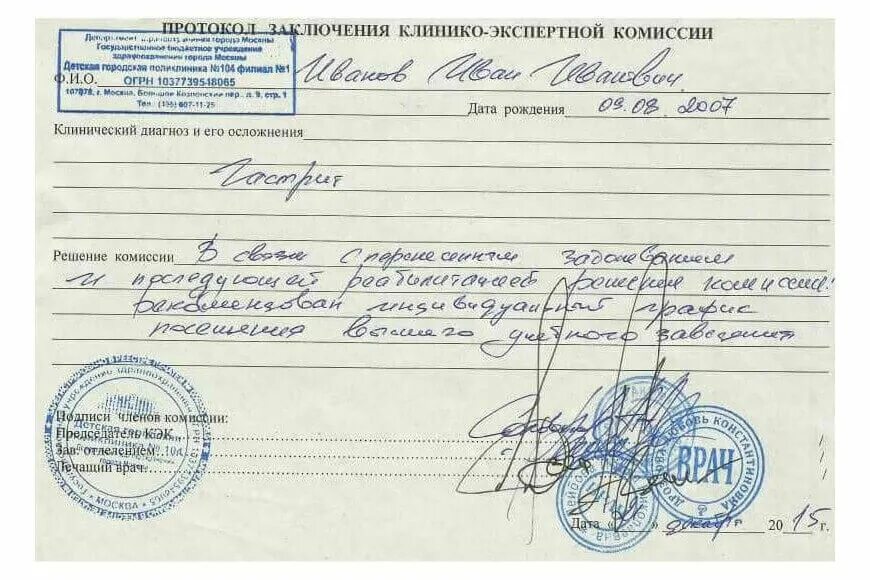 ПРОТОКОЛ ЗАКЛЮЧЕНИЯ КЛИНИКО-ЭКСПЕРТНОЙ КОМИССИИ
Государственное бюджетное учреждение
здравоохранения города Москвы
Детская городская поликлиника №104 филиал №1
ОГРН 1037739518065
107078, г. Москва, Большой Козловский пер., д. 9, стр. 1
Тел. (495) 607-11-25
Ф.И.О. Иванов Иван Иванович
Дата рождения 09.08.2007
Клинический диагноз и его осложнения
Гастрит
Решение комиссии В связи с перенесенным заболеванием
и последующей реабилитацией решением комиссии:
рекомендован индивидуальный график
посещения высшего учебного заведения
Подписи членов комиссии:
Председатель КЭК
Зав. отделением
Лечащий врач
ВРАЧ
ЛЮБОВЬ КОНСТАНТИНОВНА
МОСКВА
Дата « » декабря 2015 г.